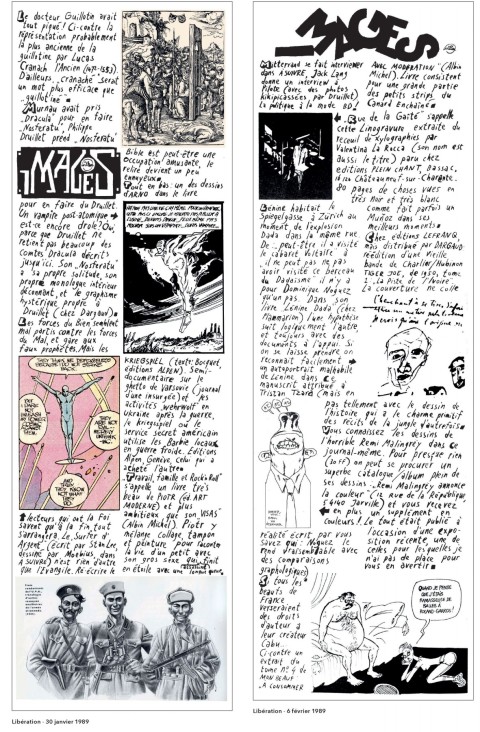 Le docteur Guillotin avait
tout piqué! Ci-contre la
représentation probablement
la plus ancienne de la
guillotine par Lucas
Cranach l'Ancien (1472-1553)
D'ailleurs, cranache serait
un mot plus efficace que
guillotine
Murnau avait pris
"Dracula" pour en faire
"Nosferatu", Philippe
Druillet prend "Nosferatu"
IMAGES
pour en faire du Druillet.
Un vampire post-atomique
est-ce encore drôle? Oui,
parce que Druillet ne
retient pas beaucoup des
comtes Dracula décrits
jusqu'ici. Son "Nosferatu"
a sa propre solitude, son
propre monologue intérieur
déconnant, et le graphisme
hystérique propre à
Druillet (chez Dargaud)
Les forces du Bien semblent
mal partis contre les forces
du Mal, et gare aux
faux prophètes. Mais les
THEY MUST
lecteurs qui ont la Foi
savent qu'à la fin tout
s'arrangera. Le Surfer
d'Argent" (écrit par Stan Lee,
dessiné par Moebius, dans
A SUIVRE) n'est rien d'autre
que l'Evangile. Ré-écrire le
Bible est peut-être une
occupation amusante, le
relire devient un peu
ennuyeux
Tout en bas: un des dessins
d'ARNO dans le livre
KRIEGSPIEL (texte: Bocquet,
éditions ALPEN). Semi-
documentaire sur le
ghetto de Varsovie (journal
d'une insurgée) et les
activités "wehrwolf" en
Ukraine après la guerre,
le kriegspiel où le
service secret américain
utilise les Barbie locaux
en guerre froide. Editions
Alpen, Genève, celui qui a
acheté l'autre
"Travail, famille et Rock'n Roll"
s'appelle un livre très
beau de PIOTR (éd. ART
MODERNE) et plus
ambitieux que son "VISAS"
(Albin Michel). Piotr y
mélange collage, tampon
et peinture pour raconter
la vie d'un petit avec
son gros sexe qui finit
en étoile avec une longue queue
Libération - 30 janvier 1989
IMAGES
Mitterrand se fait interviewer
dans A SUIVRE, Jack Lang
donne un interview à
Pilote (avec des photos
kikipicassées par Druillet)
La politique à la mode BD!
AVEC MODERATION" (Albin
Michel). Livre consistent
pour une grande partie
des petits strips du
Canard Enchaîné
"Rue de la Gaîté" s'appelle
cette Linogravure extraite du
receuil de Xylographies par
Valentina La Rocca (son nom est
aussi le titre) paru chez
editions PLEIN CHANT, Bassac,
16120 Châteauneuf-sur-Charente.
80 pages de choses vues en
très noir et très blanc
comme fait parfois un
Muñoz dans ses
meilleurs moments
Chez éditions LEFRANCQ,
mais distribué par DARGAUD:
réédition d'une Vieille
bande de Charlier/Hubinon
TIGER JOE, de 1950, tome
2: "La Piste de l'Ivoire".
La couverture ne colle
Lénine habitait le
Spiegelgasse à Zürich au
moment de l'explosion
Dada dans la même rue.
Peut-être il a visité
le cabaret Voltaire à
il ne peut pas ne pas
avoir visité ce berceau
du Dadaïsme il n'y a
pour Dominique Noguez
qu'un pas. Dans son
livre Lénine Dada (chez
Flammarion) une hypothèse
suit logiquement l'autre,
et toujours avec des
documents à l'appui. Si
on se laisse prendre on
reconnait facilement
un autoportrait malhabile
de Lénine dans ce
manuscrit attribué à
Tristan Tzara (mais en
pas tellement avec le dessin de
l'histoire qui a le charme primitif
des récits de la jungle d'autrefois
Vous connaissez les dessins de
l'horrible Remi Malingrey dans ce
journal-même. Pour presque rien
(20 FF) on peut se procurer un
superbe catalogue/album plein de
ses dessins. "Remi Malingrey annonce
la couleur" (12 rue de la République,
54140 Jarville) et vous recevez
en plus un supplément en
couleurs!. Le tout était publié à
l'occasion d'une expo-
sition récente, une de
celles pour lesquelles je
n'ai pas de place pour
vous en avertir
réalité écrit par vous
Savez qui: Noguez le
rend vraisemblable avec
des comparaisons
graphologiques)
Si tous les
beaufs de
France
verseraient
des droits
d'auteur à
leur créateur
Cabu...
Ci-contre un
extrait du
tome n° 4 de
MON BEAUF
"A CONSOMMER
QUAND JE PENSE
QUE J'ÉTAIS
RAMASSEUSE DE
BALLES À
ROLAND GARROS!
Libération - 6 février 1989